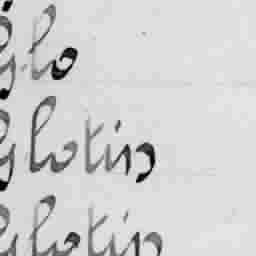 Glo
Glotin
Glotin